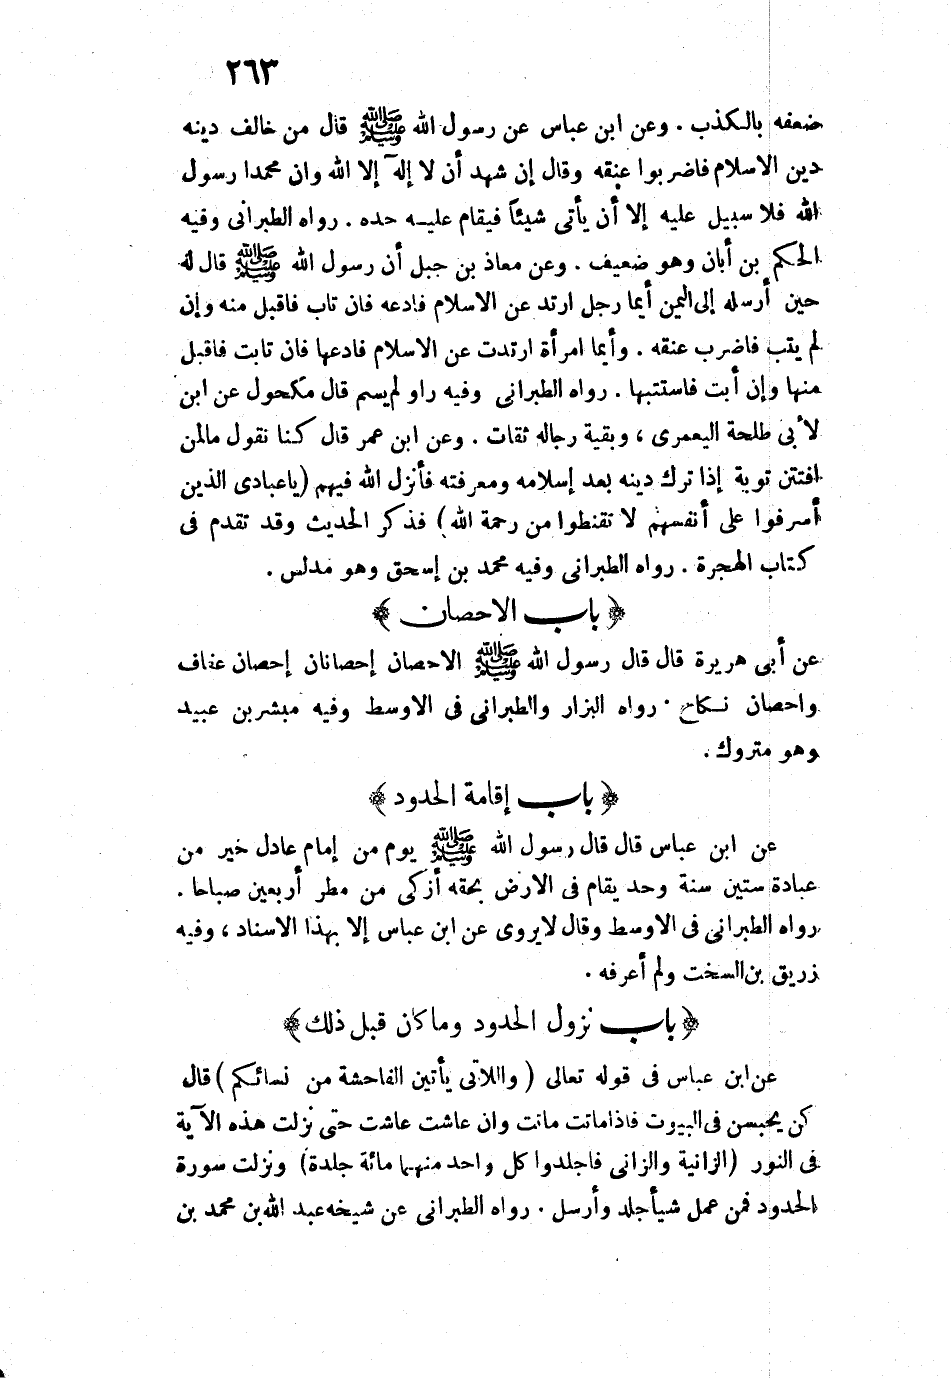 ٢٦٣
ضعفه بالكذب . وعن ابن عباس عن رسول الله ﷺ قال من خالف دينه
دين الاسلام فاضربوا عنقه وقال إن شهد أن لا إلهٓ إلا الله وان محمدا رسول
الله فلا سبيل عليه إلا أن يأتى شيئاً فيقام عليه حده . رواه الطبرانى وفيه
الحكم بن أبان وهو ضعيف . وعن معاذ بن جبل أن رسول الله ﷺ قال له
حين أرسله إلى اليمن أيما رجل ارتد عن الاسلام فادعه فان تاب فاقبل منه وإن
لم يتب فاضرب عنقه . وأيما امرأة ارتدت عن الاسلام فادعها فان تابت فاقبل
منها وإن أبت فاستتبها . رواه الطبرانى وفيه راو لم يسم قال مكحول عن ابن
لأبى طلحة اليعمرى ، وبقية رجاله ثقات . وعن ابن عمر قال كنا نقول مالمن
افتتن توبة إذا ترك دينه بعد إسلامه ومعرفته فأنزل الله فيهم (ياعبادى الذين
أسرفوا على أنفسهم لا تقنطوا من رحمة الله) فذكر الحديث وقد تقدم فى
كتاب الهجرة . رواه الطبرانى وفيه محمد بن إسحق وهو مدلس .
﴿ باب الاحصان ﴾
عن أبى هريرة قال قال رسول الله ﷺ الاحصان إحصانان إحصان عفاف
واحصان نكاح . رواه البزار والطبرانى فى الاوسط وفيه مبشر بن عبيد
وهو متروك .
﴿ باب إقامة الحدود ﴾
عن ابن عباس قال قال رسول الله ﷺ يوم من إمام عادل خير من
عبادة ستين سنة وحد يقام فى الارض بحقه أزكى من مطر أربعين صباحا .
رواه الطبرانى فى الاوسط وقال لايروى عن ابن عباس إلا بهذا الاسناد ، وفيه
زريق بن السخت ولم أعرفه .
﴿ باب نزول الحدود وما كان قبل ذلك ﴾
عن ابن عباس فى قوله تعالى ( واللاتى يأتين الفاحشة من نسائكم ) قال
كن يحبسن فى البيوت فاذا ماتت ماتت وان عاشت عاشت حتى نزلت هذه الآية
فى النور (الزانية والزانى فاجلدوا كل واحد منهما مائة جلدة) ونزلت سورة
الحدود فمن عمل شيأ جلد وأرسل . رواه الطبرانى عن شيخه عبد الله بن محمد بن